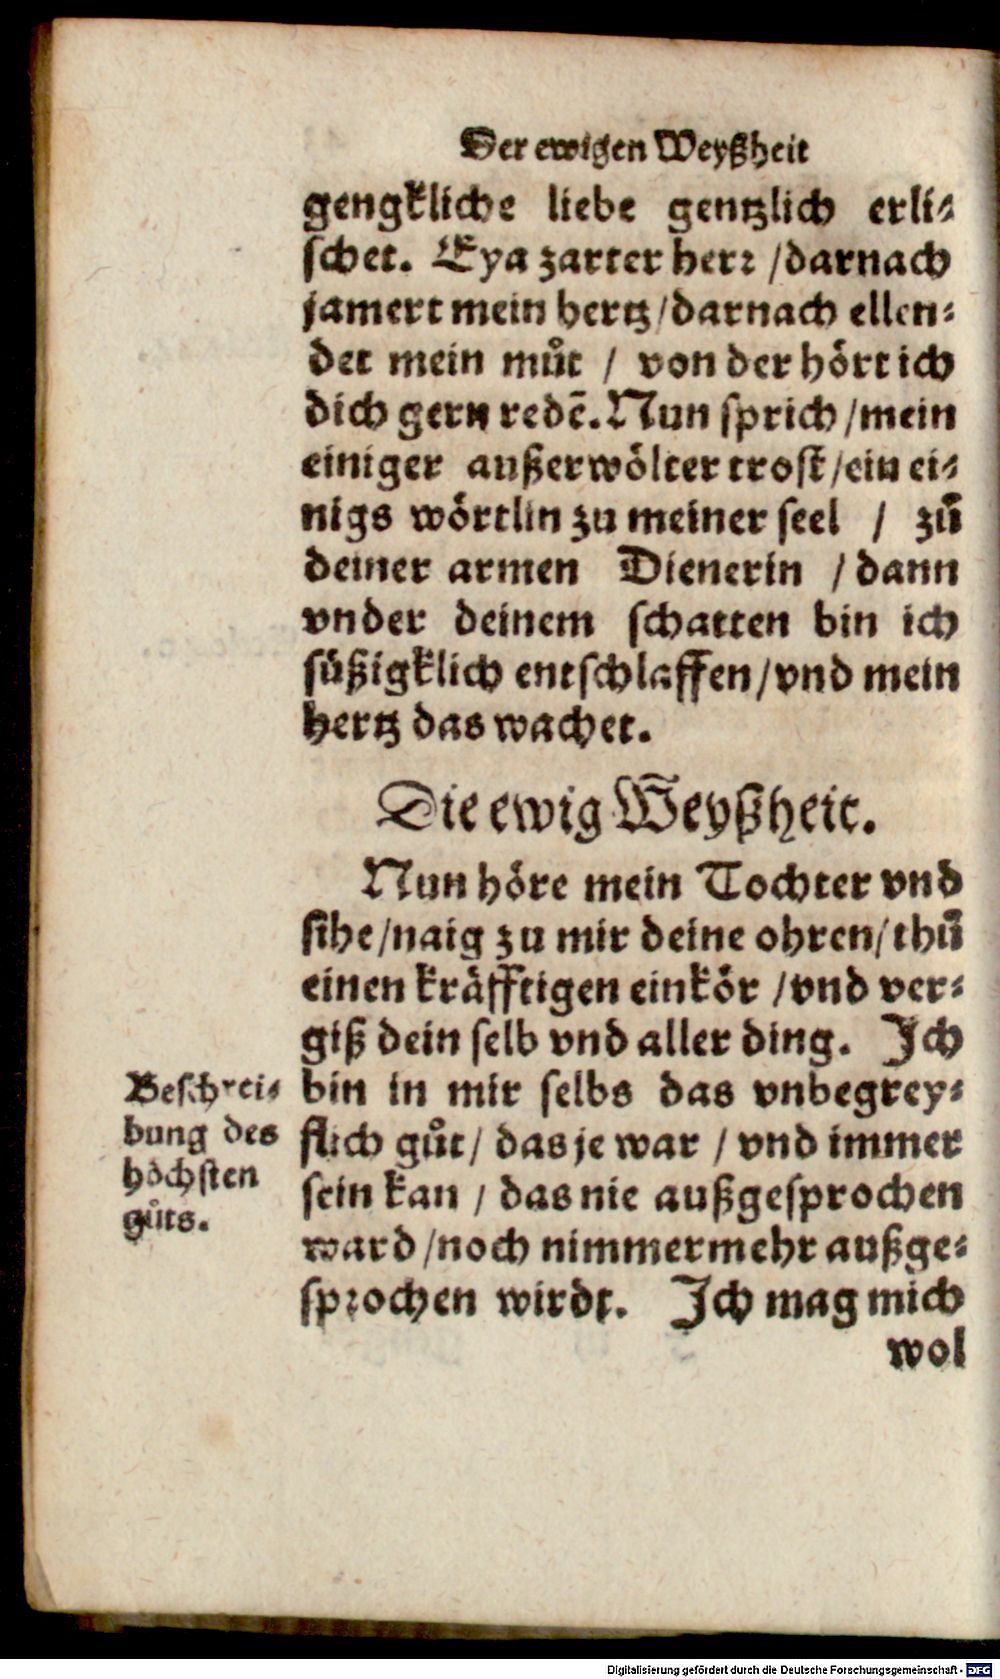 Der ewigen Weyßheit
gengkliche liebe gentzlich erli⸗
schet. Eya zarter herr /darnach
jamert mein hertz/darnach ellen⸗
det mein můt / von der hört ich
dich gern redē. Nun sprich /mein
einiger außerwölter trost/ein ei⸗
nigs wörtlin zu meiner seel / zů
deiner armen Dienerin /dann
vnder deinem schatten bin ich
süßigklich entschlaffen/vnd mein
hertz das wachet.
Die ewig Weyßheit.
Nun höre mein Tochter vnd
sihe/naig zu mir deine ohren/thů
einen kräfftigen einkör /vnd ver⸗
giß dein selb vnd aller ding. Ich
bin in mir selbs das vnbegrey⸗
flich gůt/ das je war / vnd immer
sein kan / das nie außgesprochen
ward/noch nimmermehr außge⸗
sprochen wirdt. Ich mag mich
wol
Beschrei⸗
bung des
höchsten
gůts.
Digitalisierung gefördert durch die Deutsche Forschungsgemeinschaft - DFG